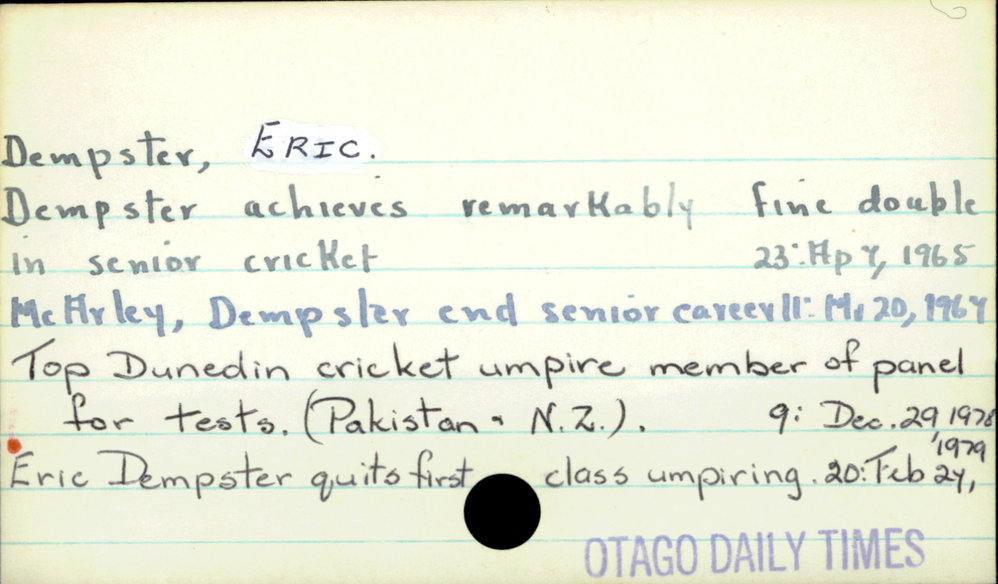 Dempster, ERIC.
Dempster achieves remarkably fine double
in senior cricket 23: Ap 7, 1965
McArley, Dempster end senior career 11: Mr 20, 1967
Top Dunedin cricket umpire member of panel
for tests. (Pakistan - N.Z.). 9: Dec. 29, 1978
Eric Dempster quits first class umpiring. 20: Feb 24, '1979
OTAGO DAILY TIMES